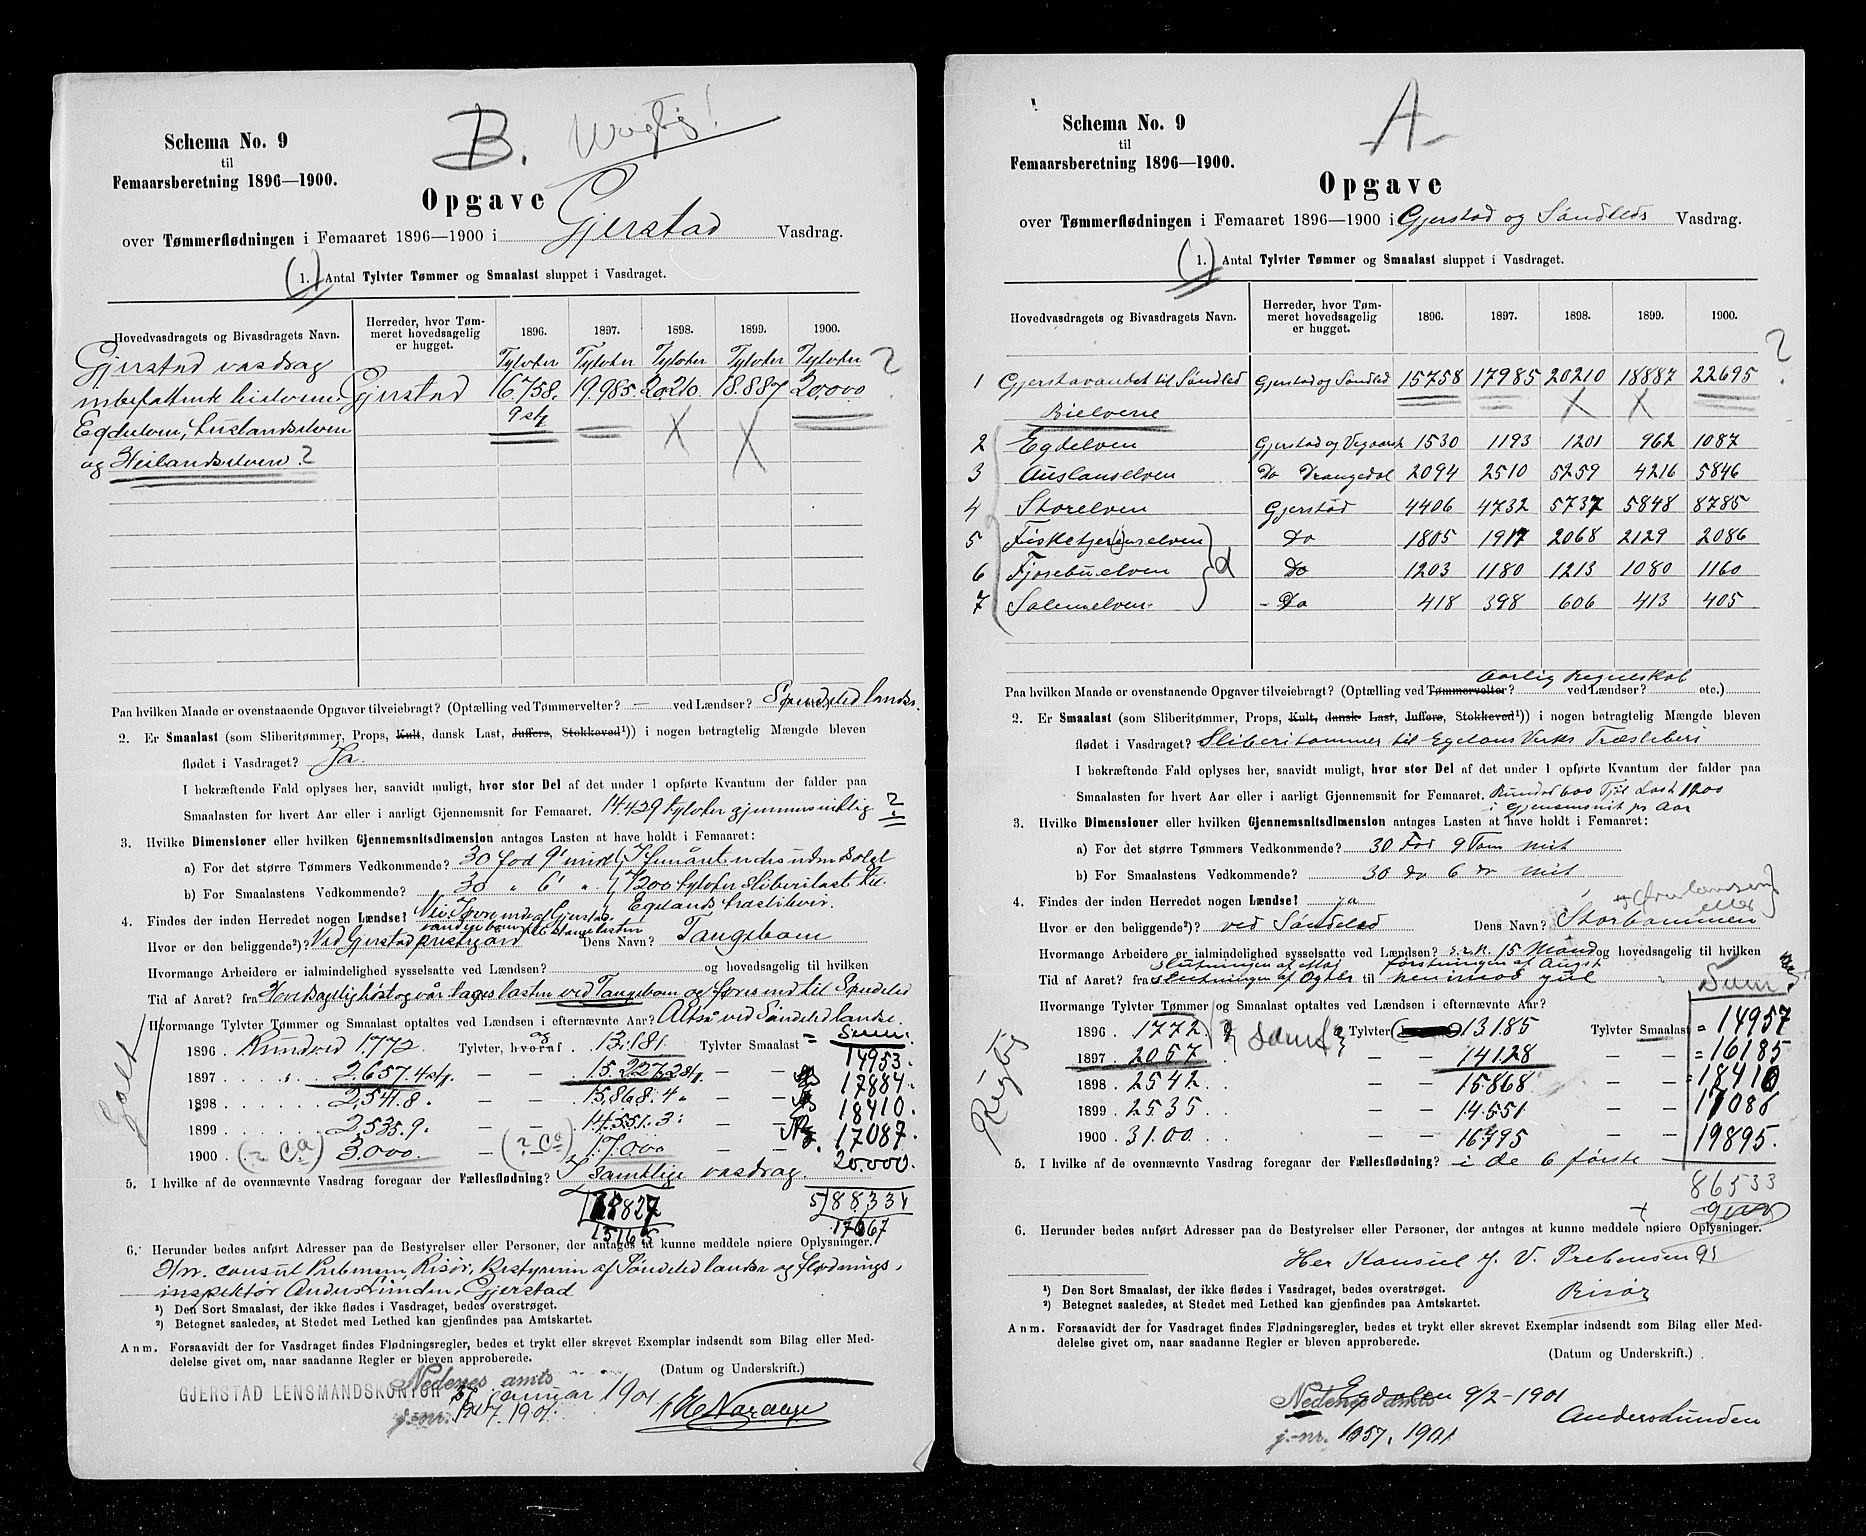 B. Urigtig!
Schema No. 9
til
Femaarsberetning 1896—1900.
Opgave
over Tømmerflødningen i Femaaret 1896—1900 i Gjerstad Vasdrag.
(1.) Antal Tylvter Tømmer og Smaalast sluppet i Vasdraget.
Hovedvasdragets og Bivasdragets Navn. Herreder, hvor Tømmeret hovedsagelig er hugget. 1896. 1897. 1898. 1899. 1900.
Gjerstad vasdrag Tylvter Tylvter Tylvter Tylvter Tylvter ?
indbefattende bielvene Gjerstad 16.758. 19.985. 20.210. 18.887 20.000
9 stk X X
Egdelven,
og Heilandselven ?
Paa hvilken Maade er ovenstaaende Opgaver tilveiebragt? (Optælling ved Tømmervelter? — ved Lændser? Søndeled landse.
2. Er Smaalast (som Sliberitømmer, Props, Kult, dansk Last, Juffers, Stokkeved¹)) i nogen betragtelig Mængde bleven
flødet i Vasdraget? Ja.
I bekræftende Fald oplyses her, saavidt muligt, hvor stor Del af det under 1 opførte Kvantum der falder paa
Smaalasten for hvert Aar eller i aarligt Gjennemsnit for Femaaret. 14.429 tylvter gjennemsnitlig ?
3. Hvilke Dimensioner eller hvilken Gjennemsnitsdimension antages Lasten at have holdt i Femaaret:
a) For det større Tømmers Vedkommende? 30 fod 9" mid
b) For Smaalastens Vedkommende? 30 " 6" " 1200 tylvter sliberilast til
Egelands træsliberi.
4. Findes der inden Herredet nogen Lændse?
Hvor er den beliggende²)? Ved Gjerstad prestegård Dens Navn? Tangebom
Hvormange Arbeidere er ialmindelighed sysselsatte ved Lændsen? og hovedsagelig til hvilken
Tid af Aaret? fra Hovedsagelig høst og vår lages lasten ved Tangebom og føres ind til Søndeled
Hvormange Tylvter Tømmer og Smaalast optaltes ved Lændsen i efternævnte Aar? Altså ved Søndeled landse.
Galt Sum:
1896 Rundved 1.772. Tylvter, hvoraf og 13.181. Tylvter Smaalast = 14953.
1897 . . . . . 2.657. 4 stk. — — 15.227. 2 stk. — — 17884.
1898 . . . . . 2.541. 8. — — 15.868. 4 " — — 18410.
1899 . . . . . 2.535. 9. — — 14.551. 3: — — 17087.
1900 . . . . (? Ca) 3.000. — (? Ca) 17.000 — — 20.000.
5. I hvilke af de ovennævnte Vasdrag foregaar der Fællesflødning? I samtlige vasdrag.
5/88334
17667
6. Herunder bedes anført Adresser paa de Bestyrelser eller Personer, der antages at kunne meddele nøiere Oplysninger.
Hrr. consul Prebensen, Risør, bestyreren af Søndeled landse og flødnings-
inspektør Anders Lunden, Gjerstad
¹) Den Sort Smaalast, der ikke flødes i Vasdraget, bedes overstrøget.
²) Betegnet saaledes, at Stedet med Lethed kan gjenfindes paa Amtskartet.
Anm. Forsaavidt der for Vasdraget findes Flødningsregler, bedes et trykt eller skrevet Exemplar indsendt som Bilag eller Meddelelse givet om, naar saadanne Regler er bleven approberede.
(Datum og Underskrift.)
Nedenes amts
GJERSTAD LENSMANDSKONTOR januar 1901
j.-nr. 1901.
A
Schema No. 9
til
Femaarsberetning 1896—1900.
Opgave
over Tømmerflødningen i Femaaret 1896—1900 i Gjerstad og Søndleds Vasdrag.
(1.) Antal Tylvter Tømmer og Smaalast sluppet i Vasdraget.
Hovedvasdragets og Bivasdragets Navn. Herreder, hvor Tømmeret hovedsagelig er hugget. 1896. 1897. 1898. 1899. 1900.
?
1 Gjerstavandet til Søndled Gjerstad og Søndled 15758 17985 20210 18887 22695
Bielvene X X
2 Egdelven Gjerstad og Vegaarsh 1530 1193 1201 962 1087
3 Auslanselven Do Drangedal 2094 2510 5259 4216 5846
4 Storelven Gjerstad 4406 4732 5737 5848 8785
5 Fisketjernselven Do 1805 1917 2068 2129 2086
6 Fjosebuelven Do 1203 1180 1213 1080 1160
7 Solemelven - Do 418 398 606 413 405
Aarlig Regnskab
Paa hvilken Maade er ovenstaaende Opgaver tilveiebragt? (Optælling ved Tømmervelter? ved Lændser? etc.)
2. Er Smaalast (som Sliberitømmer, Props, Kult, dansk Last, Juffers, Stokkeved¹)) i nogen betragtelig Mængde bleven
flødet i Vasdraget? Sliberitømmer til Egelans Verks Træsliberi
I bekræftende Fald oplyses her, saavidt muligt, hvor stor Del af det under 1 opførte Kvantum der falder paa
Smaalasten for hvert Aar eller i aarligt Gjennemsnit for Femaaret. Last 1200
i Gjensemsnit pr Aar
3. Hvilke Dimensioner eller hvilken Gjennemsnitsdimension antages Lasten at have holdt i Femaaret:
a) For det større Tømmers Vedkommende? 30 Fod 9 Tom mit
b) For Smaalastens Vedkommende? 30 do 6 do mit
4. Findes der inden Herredet nogen Lændse? ja
Hvor er den beliggende²)? ved Søndeled Dens Navn? Storbommen
Hvormange Arbeidere er ialmindelighed sysselsatte ved Lændsen? 15 Mand og hovedsagelig til hvilken
slutningen af Maj
Tid af Aaret? fra til
Hvormange Tylvter Tømmer og Smaalast optaltes ved Lændsen i efternævnte Aar? Sum
Rigtig
1896 . 1772 Tylvter 13185 Tylvter Smaalast = 14957
1897 . 2057 — — 14128 — — = 16185
1898 . 2542 — — 15868 — — = 18410
1899 . 2535 — — 14.551 — — 17086
1900 . 3100 — — 16795 — — 19895.
5. I hvilke af de ovennævnte Vasdrag foregaar der Fællesflødning? i de 6 første
86533
6. Herunder bedes anført Adresser paa de Bestyrelser eller Personer, der antages at kunne meddele nøiere Oplysninger.
Her Konsul J. V. Prebensen
Risør
¹) Den Sort Smaalast, der ikke flødes i Vasdraget, bedes overstrøget.
²) Betegnet saaledes, at Stedet med Lethed kan gjenfindes paa Amtskartet.
Anm. Forsaavidt der for Vasdraget findes Flødningsregler, bedes et trykt eller skrevet Exemplar indsendt som Bilag eller Meddelelse givet om, naar saadanne Regler er bleven approberede.
(Datum og Underskrift.)
Nedenes amts
Egdalen 9/2-1901
Anders Lunden
j.-nr. 1057. 1901